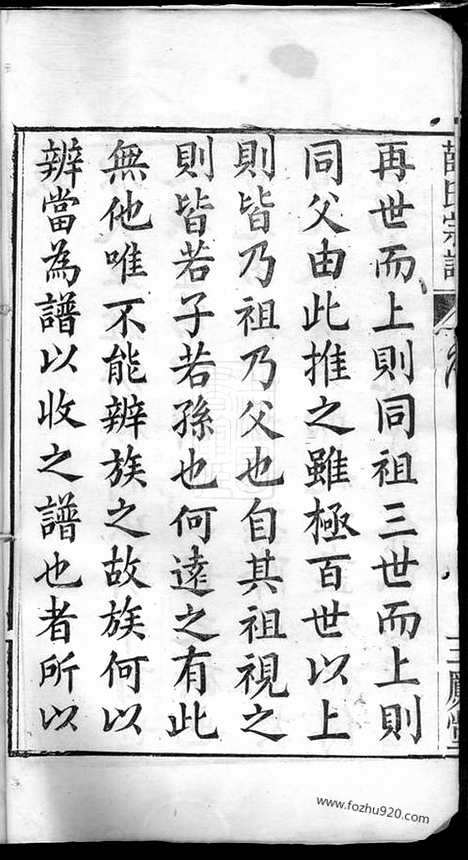 再世而上則同祖三世而上則
同父由此推之雖極百世以上
則皆乃祖乃父也自其祖視之
則皆若子若孫也何遠之有此
無他唯不能辨族之故族何以
辨當為譜以收之譜也者所以
www.fozhu920.com